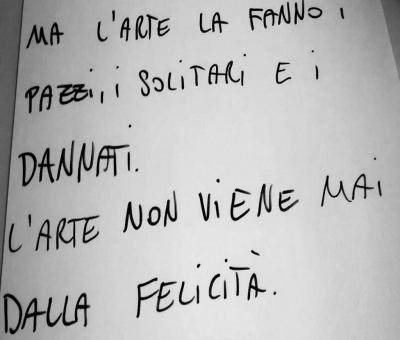 MA L'ARTE LA FANNO I
PAZZI, I SOLITARI E I
DANNATI.
L'ARTE NON VIENE MAI
DALLA FELICITÀ.